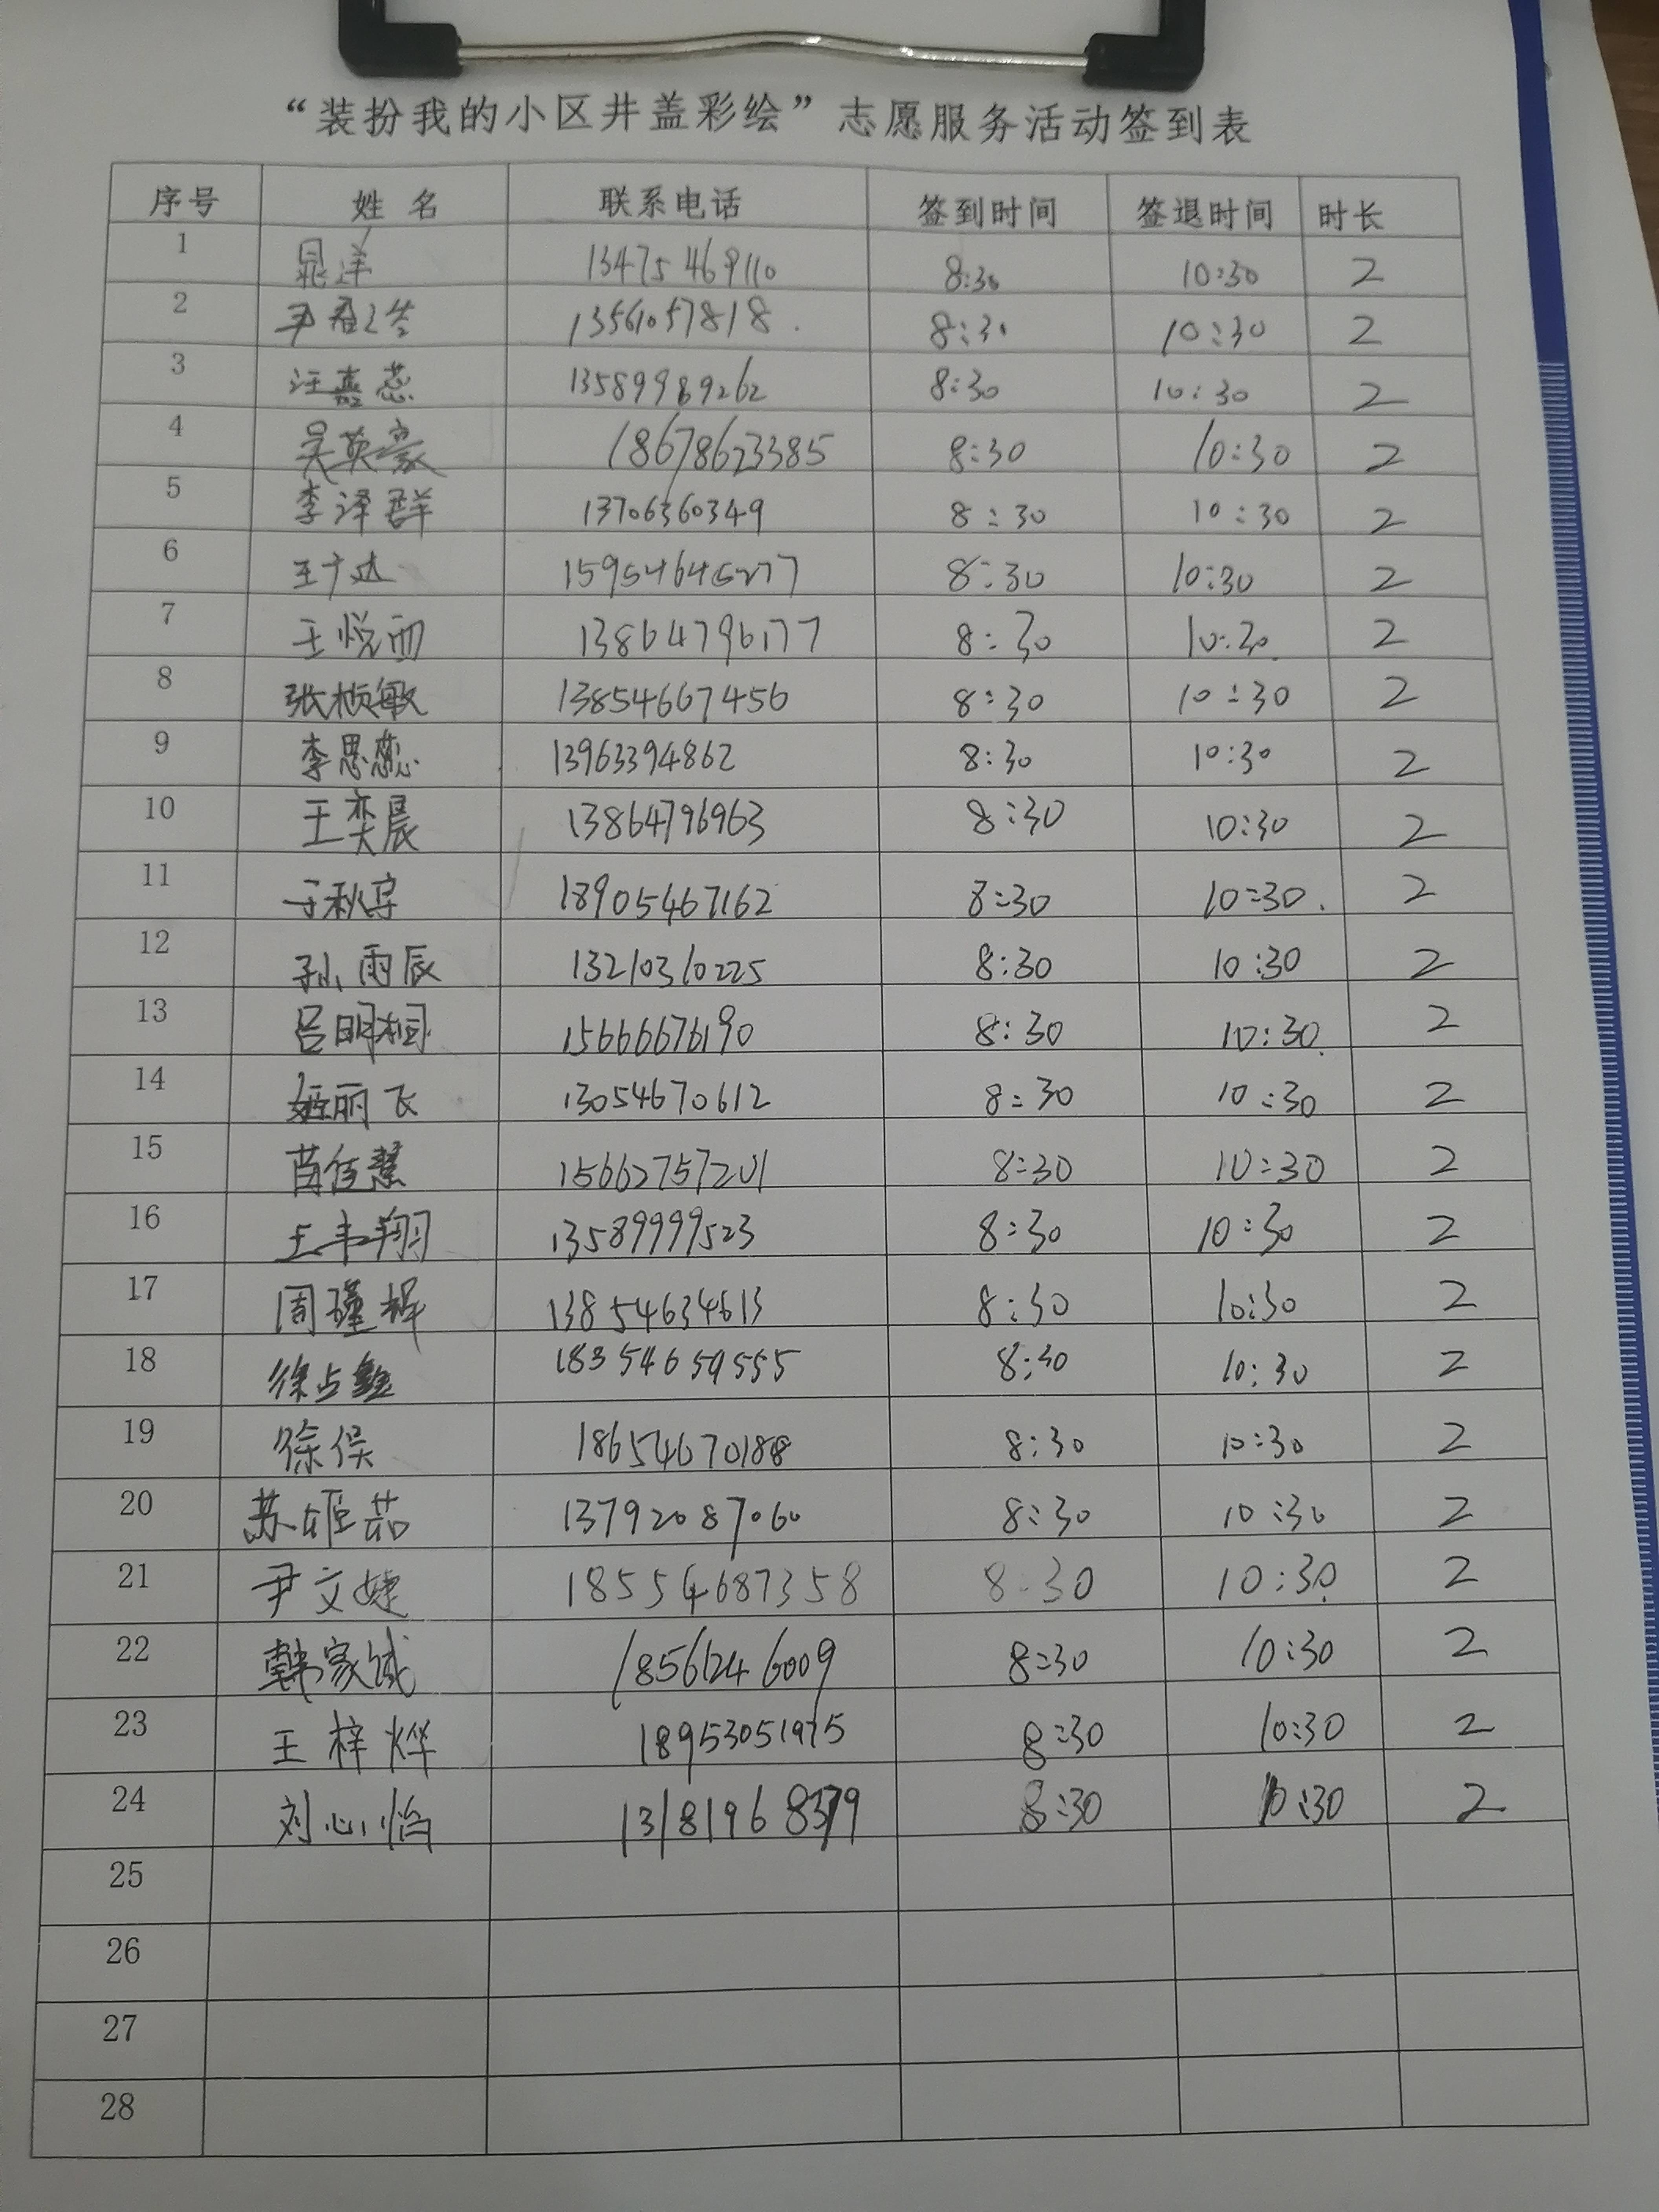 “装扮我的小区井盖彩绘”志愿服务活动签到表
序号 姓名 联系电话 签到时间 签退时间 时长
1 晁洋 13475469110 8:30 10:30 2
2 13561057818 8:30 10:30 2
3 汪嘉蕊 13589989262 8:30 10:30 2
4 吴英豪 18678623385 8:30 10:30 2
5 李泽群 13706360349 8:30 10:30 2
6 王于达 15954645277 8:30 10:30 2
7 王悦而 13864796177 8:30 10:30 2
8 张桢敏 13854667456 8:30 10:30 2
9 李思懿 13963394862 8:30 10:30 2
10 王奕晨 13864796963 8:30 10:30 2
11 于秋宇 18905467162 8:30 10:30 2
12 孙雨辰 13210310225 8:30 10:30 2
13 吕明桐 15666676190 8:30 10:30 2
14 丽飞 13054670612 8:30 10:30 2
15 苗佳慧 15662757201 8:30 10:30 2
16 王丰翔 13589999523 8:30 10:30 2
17 周瑾桦 13854634613 8:30 10:30 2
18 徐占鑫 18354659555 8:30 10:30 2
19 徐俣 18654670188 8:30 10:30 2
20 苏姮茹 13792087060 8:30 10:30 2
21 尹文婕 18554687358 8:30 10:30 2
22 韩家诚 18561246009 8:30 10:30 2
23 王梓烨 18953051975 8:30 10:30 2
24 刘心怡 13181968379 8:30 10:30 2
25
26
27
28